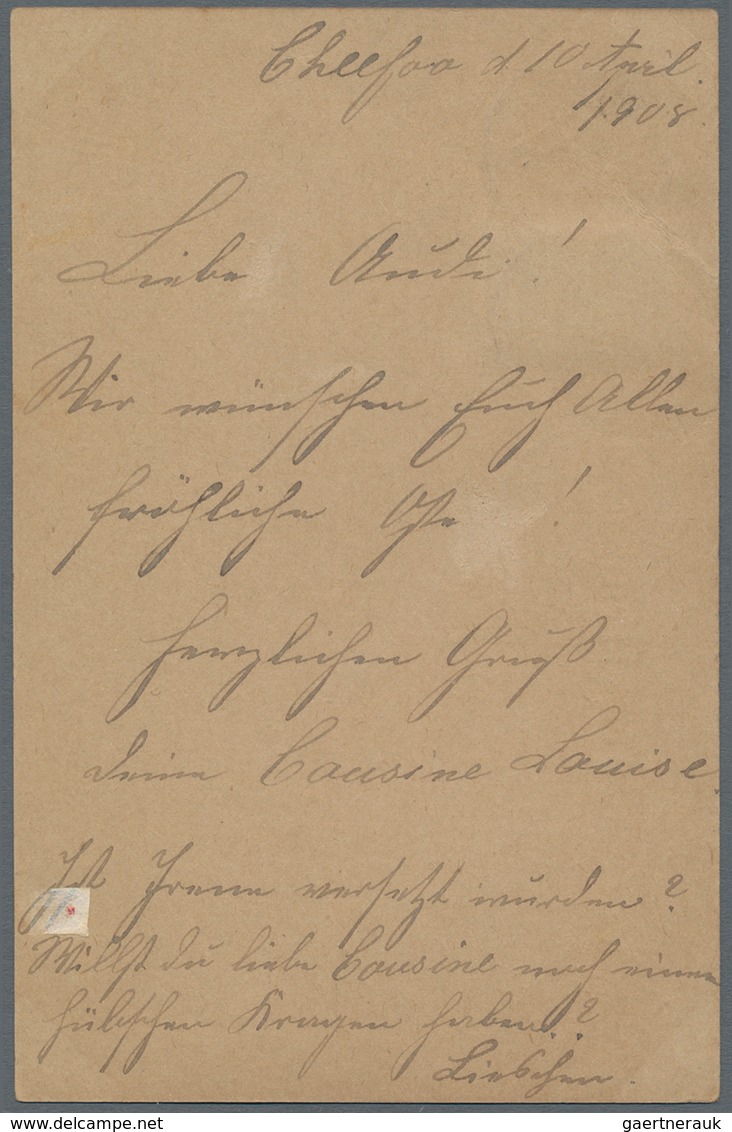 Cheefoo d. 10 April.
1908.
Liebe Audi!
Wir wünschen Euch Allen
fröhliche Oste !
Herzlichen Gruß
deine Cousine Louise.
Ist Irene versetzt wurden?
Willst du liebe Cousine noch einen
hübschen Kragen haben..?
Lieschen.
gaertnerauk